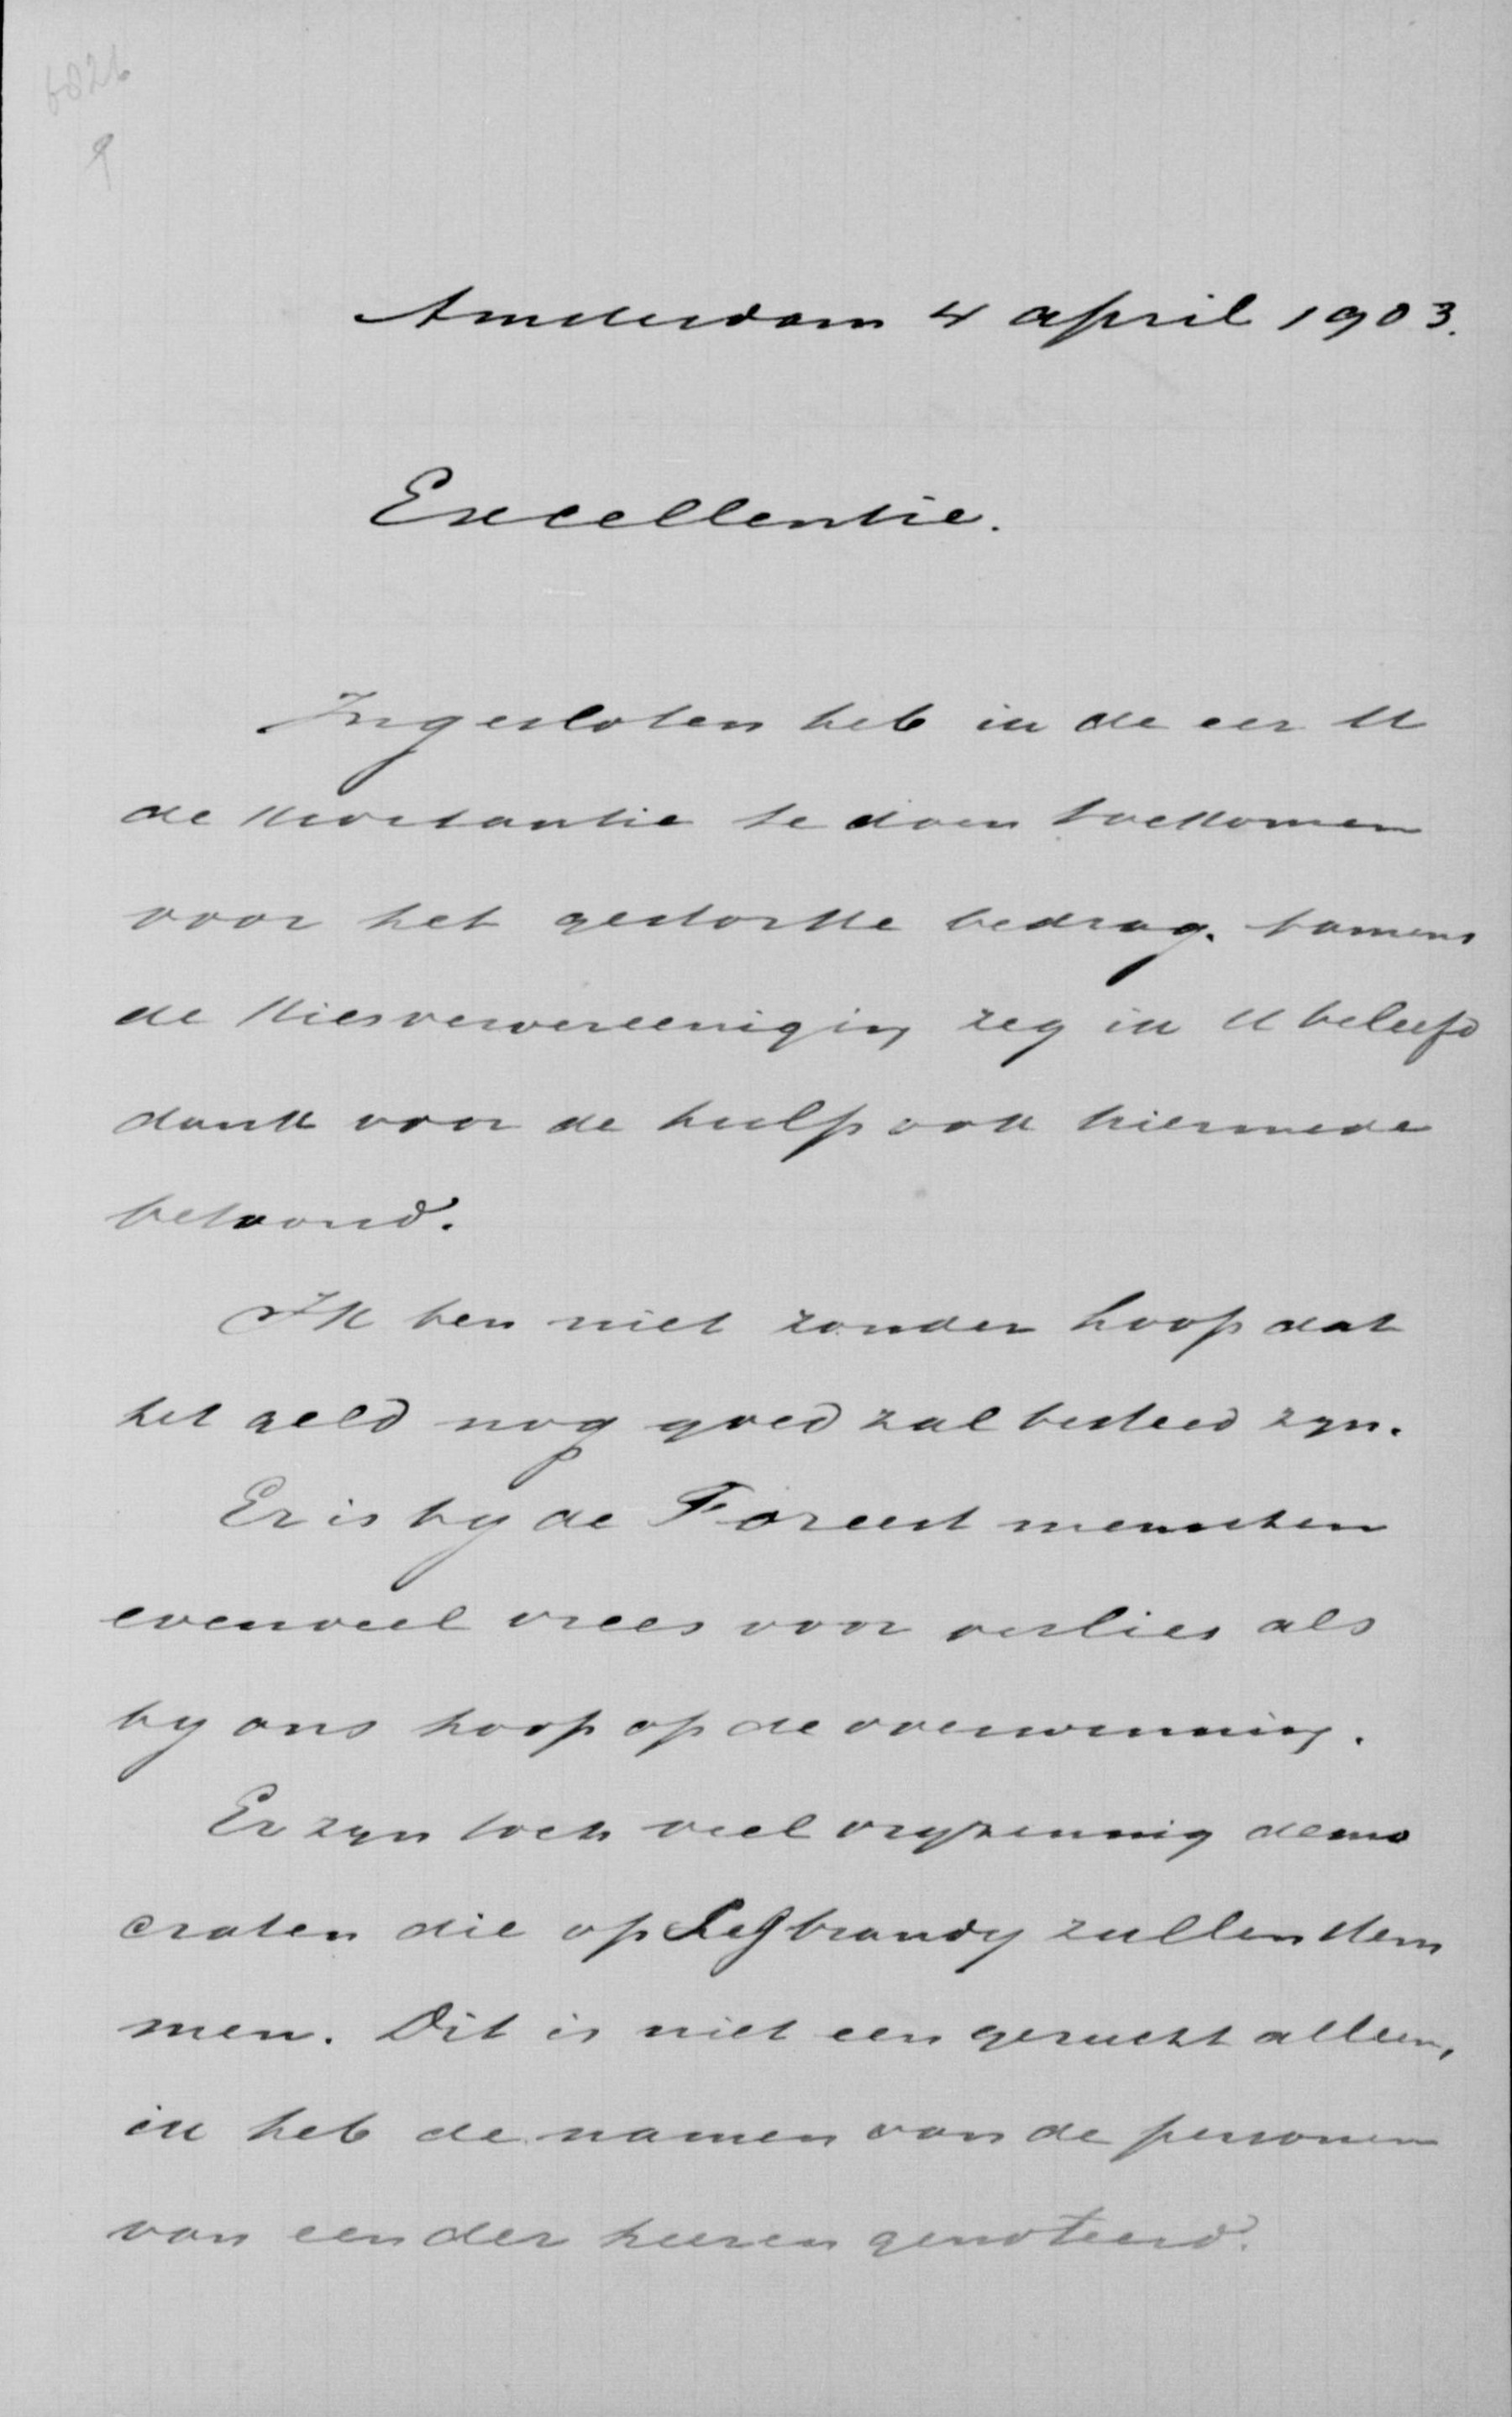 6826
9
Amsterdam 4 april 1903.
Excellentie.
Ingesloten heb ik de eer U
de kwitantie te doen toekomen
voor het gestortte bedrag. Namens
de Kiesverveereeniging zeg ik U beleefd
dank voor de hulp ook hiermede
betoond.
Ik ben niet zonder hoop dat
het geld nog goed zal besteed zyn.
Er is by de Foreest menschen
evenveel vrees voor verlies als
by ons hoop op de overwinning.
Er zyn toch veel vryzinnig demo
craten die op Seÿbrandy zullen stem
men. Dit is niet een gerucht alleen,
ik heb de namen van de personen
van een der heeren genoteerd.